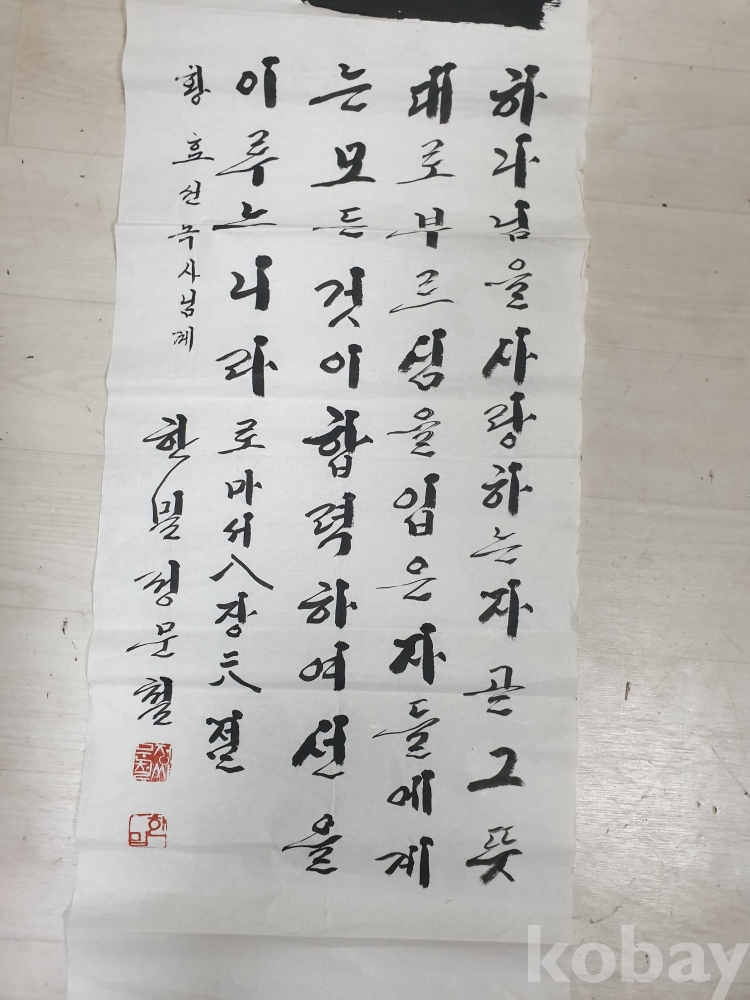 하나님을사랑하는자곧그뜻
대로부르심을입은자들에게
는모든것이합력하여선을
이루느니라 로마서八장二八절
황효선목사님께
한밀 정문철
정씨문철
한밀
kobay